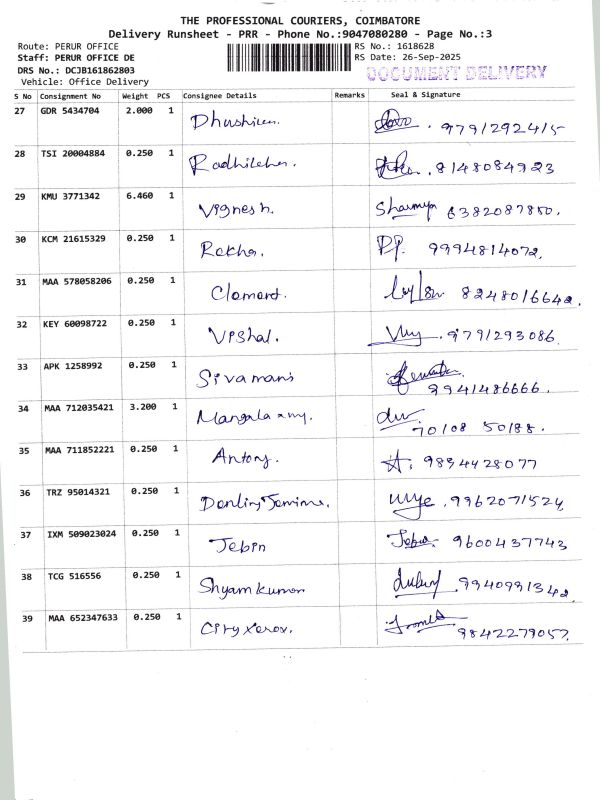 THE PROFESSIONAL COURIERS, COIMBATORE
Delivery Runsheet - PRR - Phone No.:9047080280 - Page No.:3
Route: PERUR OFFICE RS No.: 1618628
Staff: PERUR OFFICE DE RS Date: 26-Sep-2025
DRS No.: DCJB161862803 DOCUMENT DELIVERY
Vehicle: Office Delivery
S No Consignment No Weight PCS Consignee Details Remarks Seal & Signature
27 GDR 5434704 2.000 1 9791292415
28 TSI 20004884 0.250 1 8148084923
29 KMU 3771342 6.460 1 Vignesh. Sharmya 6382087850.
30 KCM 21615329 0.250 1 Rekha. 9994814072.
31 MAA 578058206 0.250 1 Clement. 8248016642.
32 KEY 60098722 0.250 1 Vishal. 9791293086
33 APK 1258992 0.250 1 Sivamani
9941486666.
34 MAA 712035421 3.200 1
70108 50188.
35 MAA 711852221 0.250 1 Antony. 9894428077
36 TRZ 95014321 0.250 1 9962071524
37 IXM 509023024 0.250 1 Jebin 9600437743
38 TCG 516556 0.250 1 Shyam kumar 9940991342.
39 MAA 652347633 0.250 1 City xerox.
9842279057.